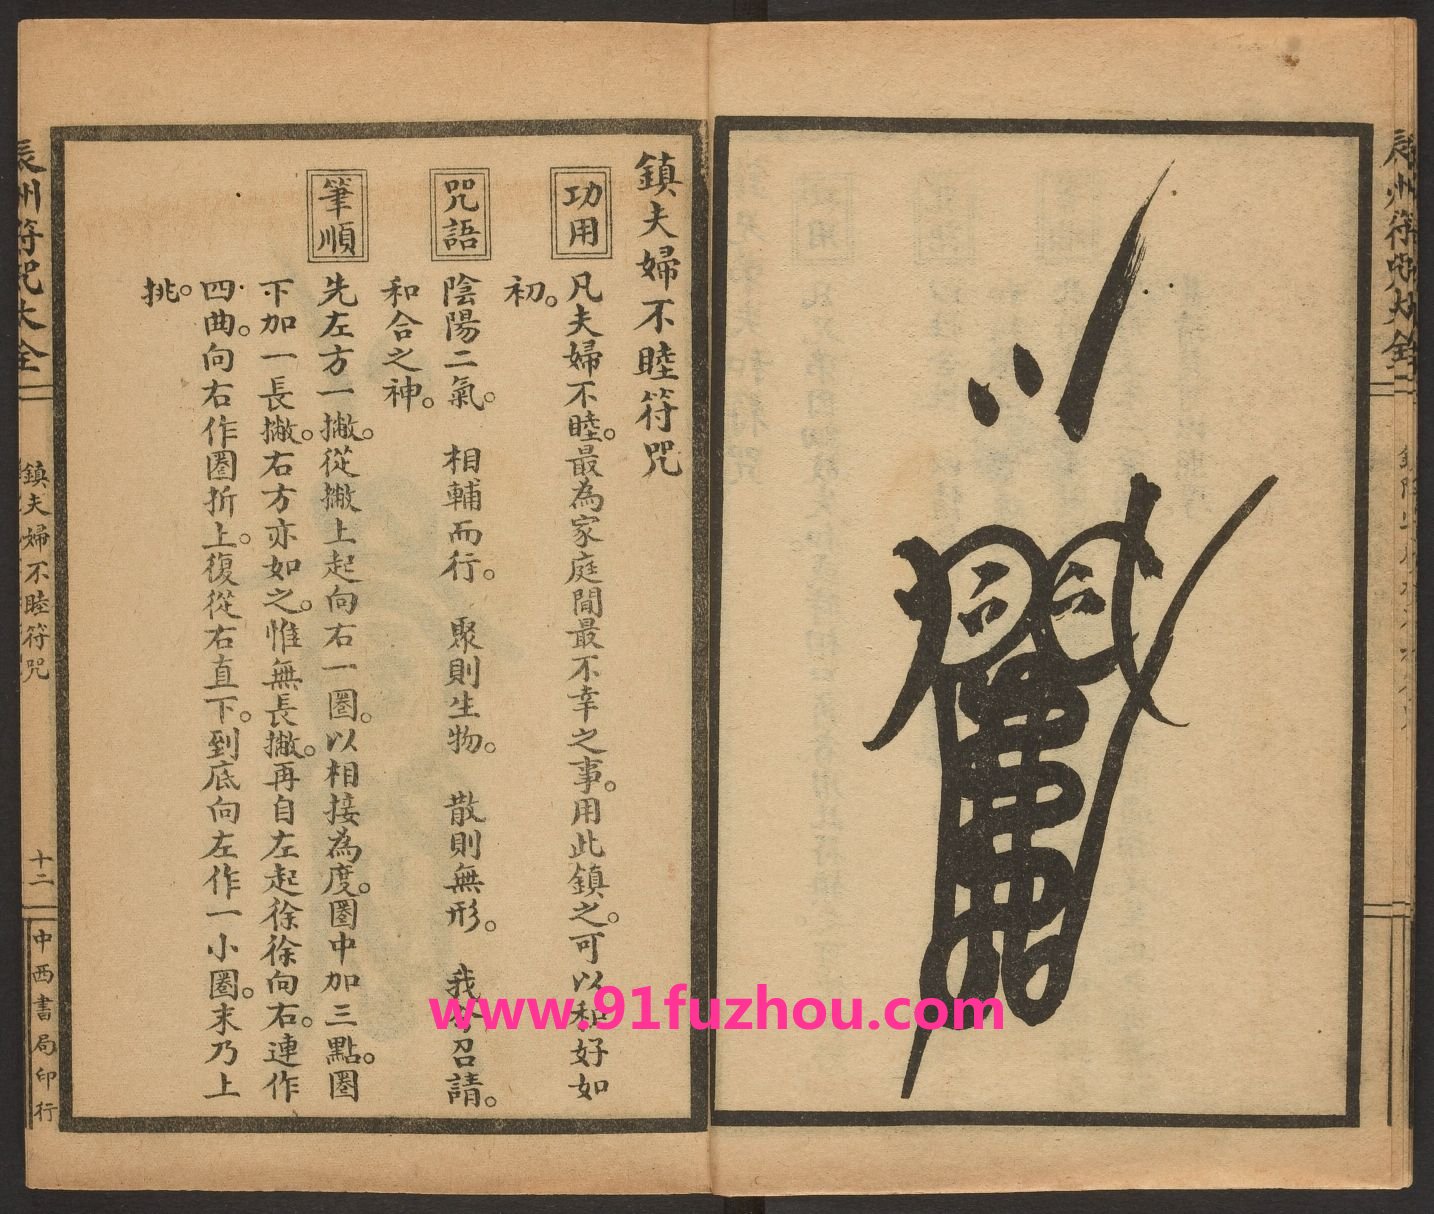 辰州符咒大全
鎮夫婦不睦符咒
功用
凡夫婦不睦。最為家庭間最不幸之事。用此鎮之。可以和好如
初。
咒語
陰陽二氣。　相輔而行。　聚則生物。　散則無形。　我今召請。
和合之神。
筆順
先左方一撇。從撇上起向右一圈。以相接為度。圈中加三點。圈
下加一長撇。右方亦如之。惟無長撇。再自左起徐徐向右。連作
四曲。向右作圈折上。復從右直下。到底向左作一小圈。末乃上
挑。
辰州符咒大全
鎮夫婦不睦符咒
十二
中西書局印行
www.91fuzhou.com